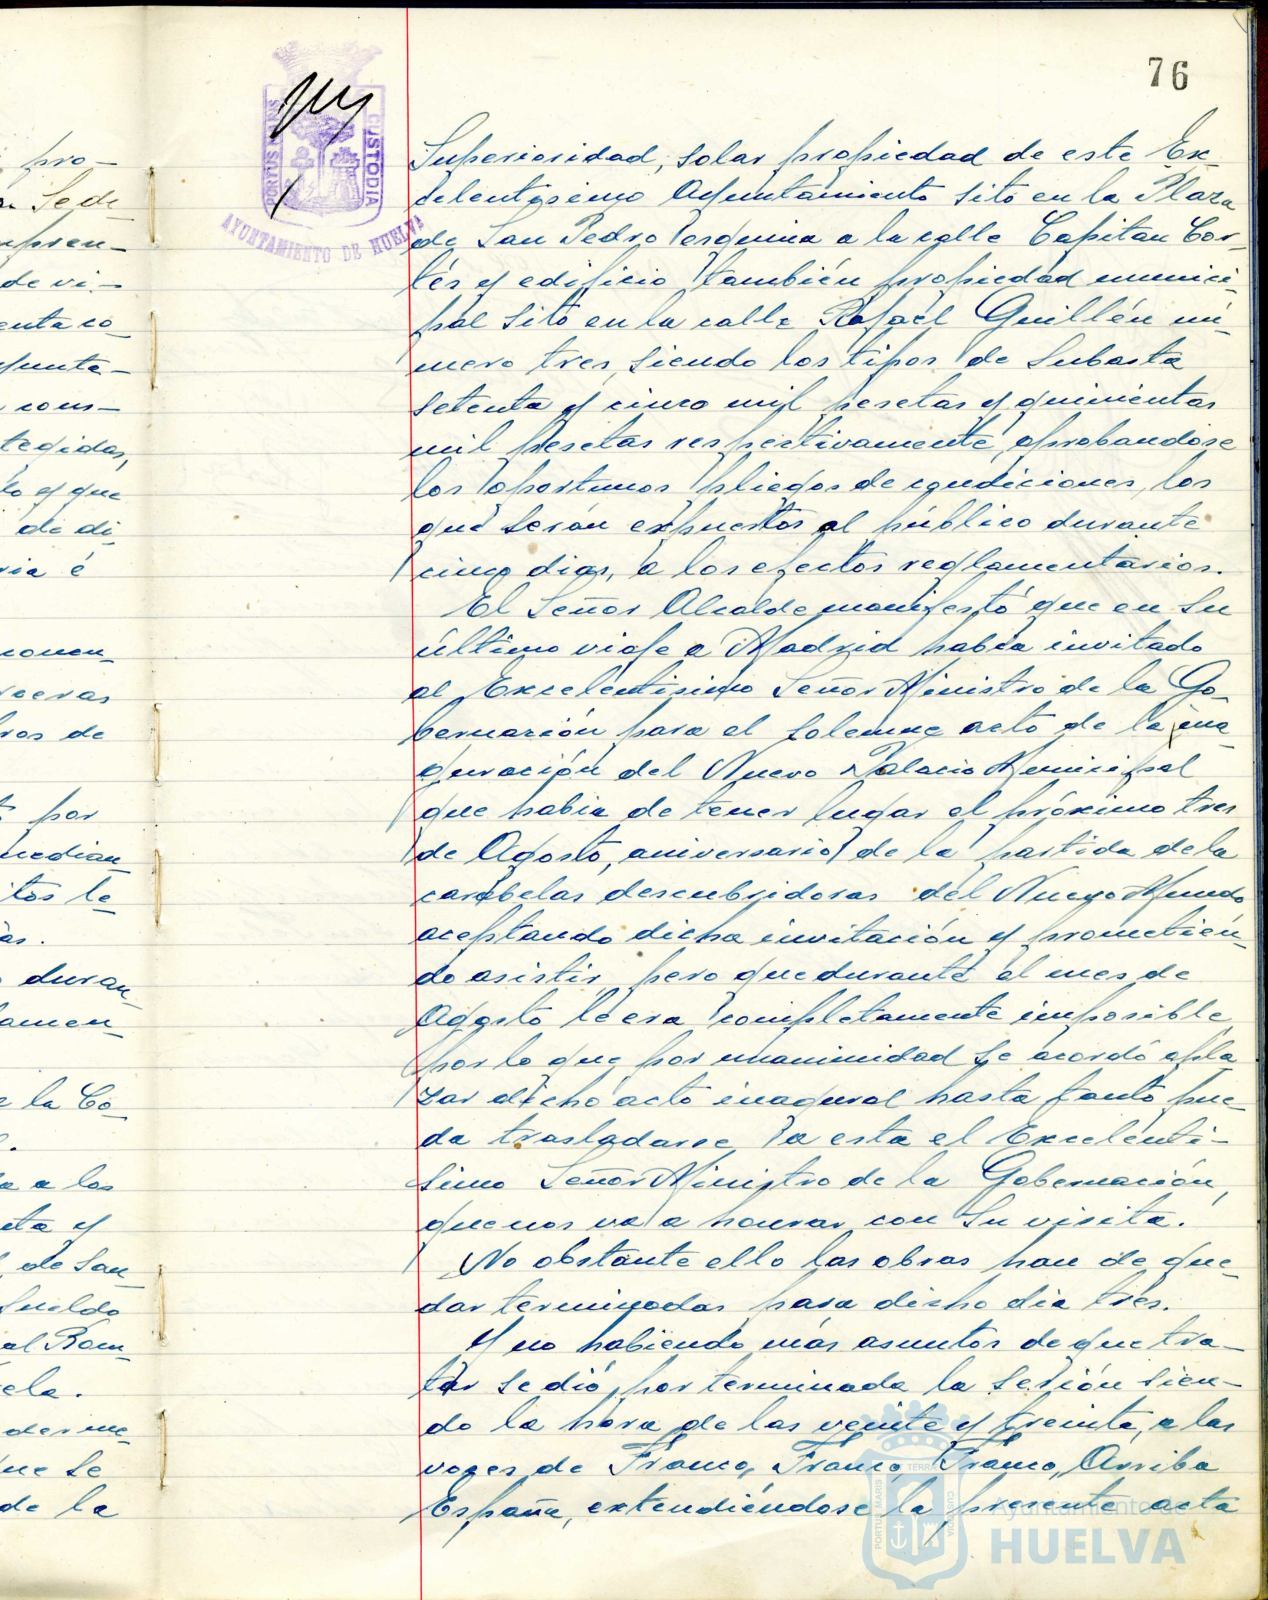 76
PORTUS MARIS
CUSTODIA
AYUNTAMIENTO DE HUELVA
pro-
Sede-
pren-
de vi-
enta co-
punta-
cons-
tegidas,
lo y que
de di-
ria é
ronen-
ros de
por
median-
itos le-
as.
duran-
lamen-
e la Co-
a a los
ta y
de San-
Sueldo
al Rom-
ela.
ue se
de la
Superioridad, solar propiedad de este Ex-
celentisimo Ayuntamiento sito en la Plaza
de San Pedro esquina a la calle Capitan Cor-
tés y edificio también propiedad munici-
pal sito en la calle Rafael Guillén nú-
mero tres, siendo los tipos de subasta
setenta y cinco mil pesetas y quinientas
mil pesetas respectivamente, aprobandose
los oportunos pliegos de condiciones, los
que serán expuestos al público durante
cinco dias, a los efectos reglamentarios.
El Señor Alcalde manifestó que en su
último viaje a Madrid habia invitado
al Excelentisimo Señor Ministro de la Go-
bernación para el solemne acto de la ina-
guración del Nuevo Palacio Municipal
que habia de tener lugar el próximo tres
de Agosto, aniversario de la partida de la
carabelas descubridoras del Nuevo Mundo
aceptando dicha invitación y prometien-
do asistir, pero que durante el mes de
Agosto le era completamente imposible,
por lo que por unanimidad se acordó apla-
zar dicho acto inagural hasta tanto pue-
da trasladarse a esta el Excelenti-
simo Señor Ministro de la Gobernación,
que nos va a honrar con su visita.
No obstante ello las obras han de que-
dar terminadas para dicho dia tres.
Y no habiendo más asuntos de que tra-
tar se dió por terminada la sesión sien-
do la hora de las veinte y treinta, a las
voces de Franco, Franco, Franco, Arriba
España, extendiéndose la presente acta
Ayuntamiento de
HUELVA